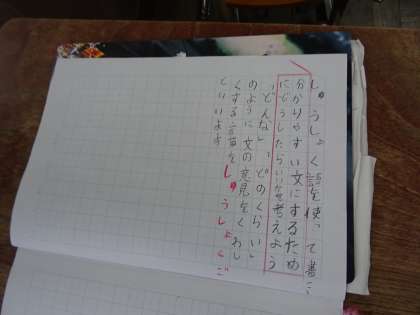 しゅうしょく語を使って書こ
分かりやすい文にするため
にどうしたらいいか考えよう
「どんな」、「どのくらい」
のように文の意見をくわし
くする言葉をしゅうしょくご
といいます